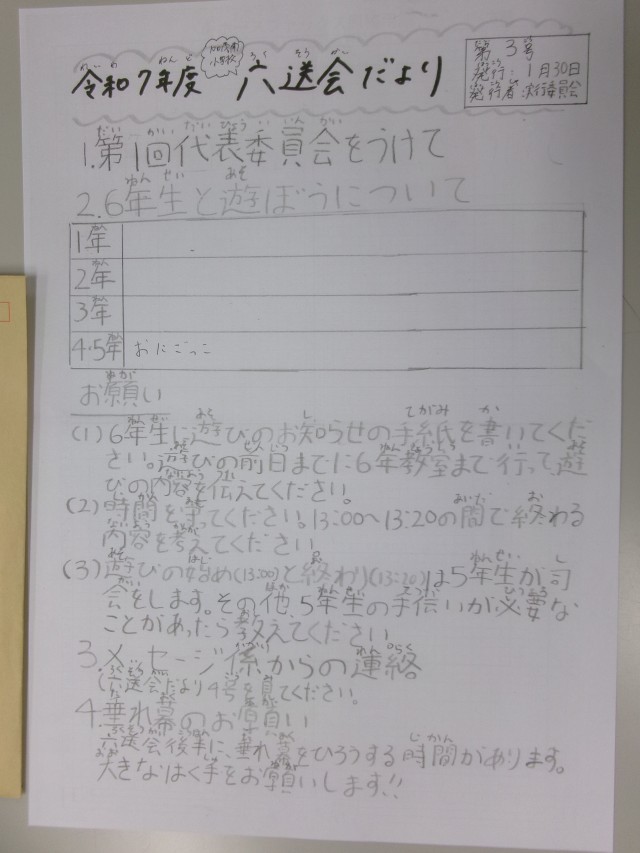 令和7年度 六送会だより
第3号
発行:1月30日
発行者 実行委員会
1.第1回代表委員会をうけて
2.6年生と遊ぼうについて
1年
2年
3年
4・5年 おにごっこ
お願い
(1)6年生に遊びのお知らせの手紙を書いてくだ
さい。遊びの前日までに6年教室まで行って遊
びの内容を伝えてください。
(2)時間を守ってください。13:00〜13:20の間で終わる
内容を考えてください
(3)遊びの始め(13:00)と終わり(13:20)は5年生が司
会をします。その他、5年生の手伝いが必要な
ことがあったら教えてください
3.メッセージ係からの連絡
(六送会だより4号を見てください。
4.垂れ幕のお願い
六送会後半に、垂れ幕をひろうする時間があります。
大きなはく手をお願いします!!